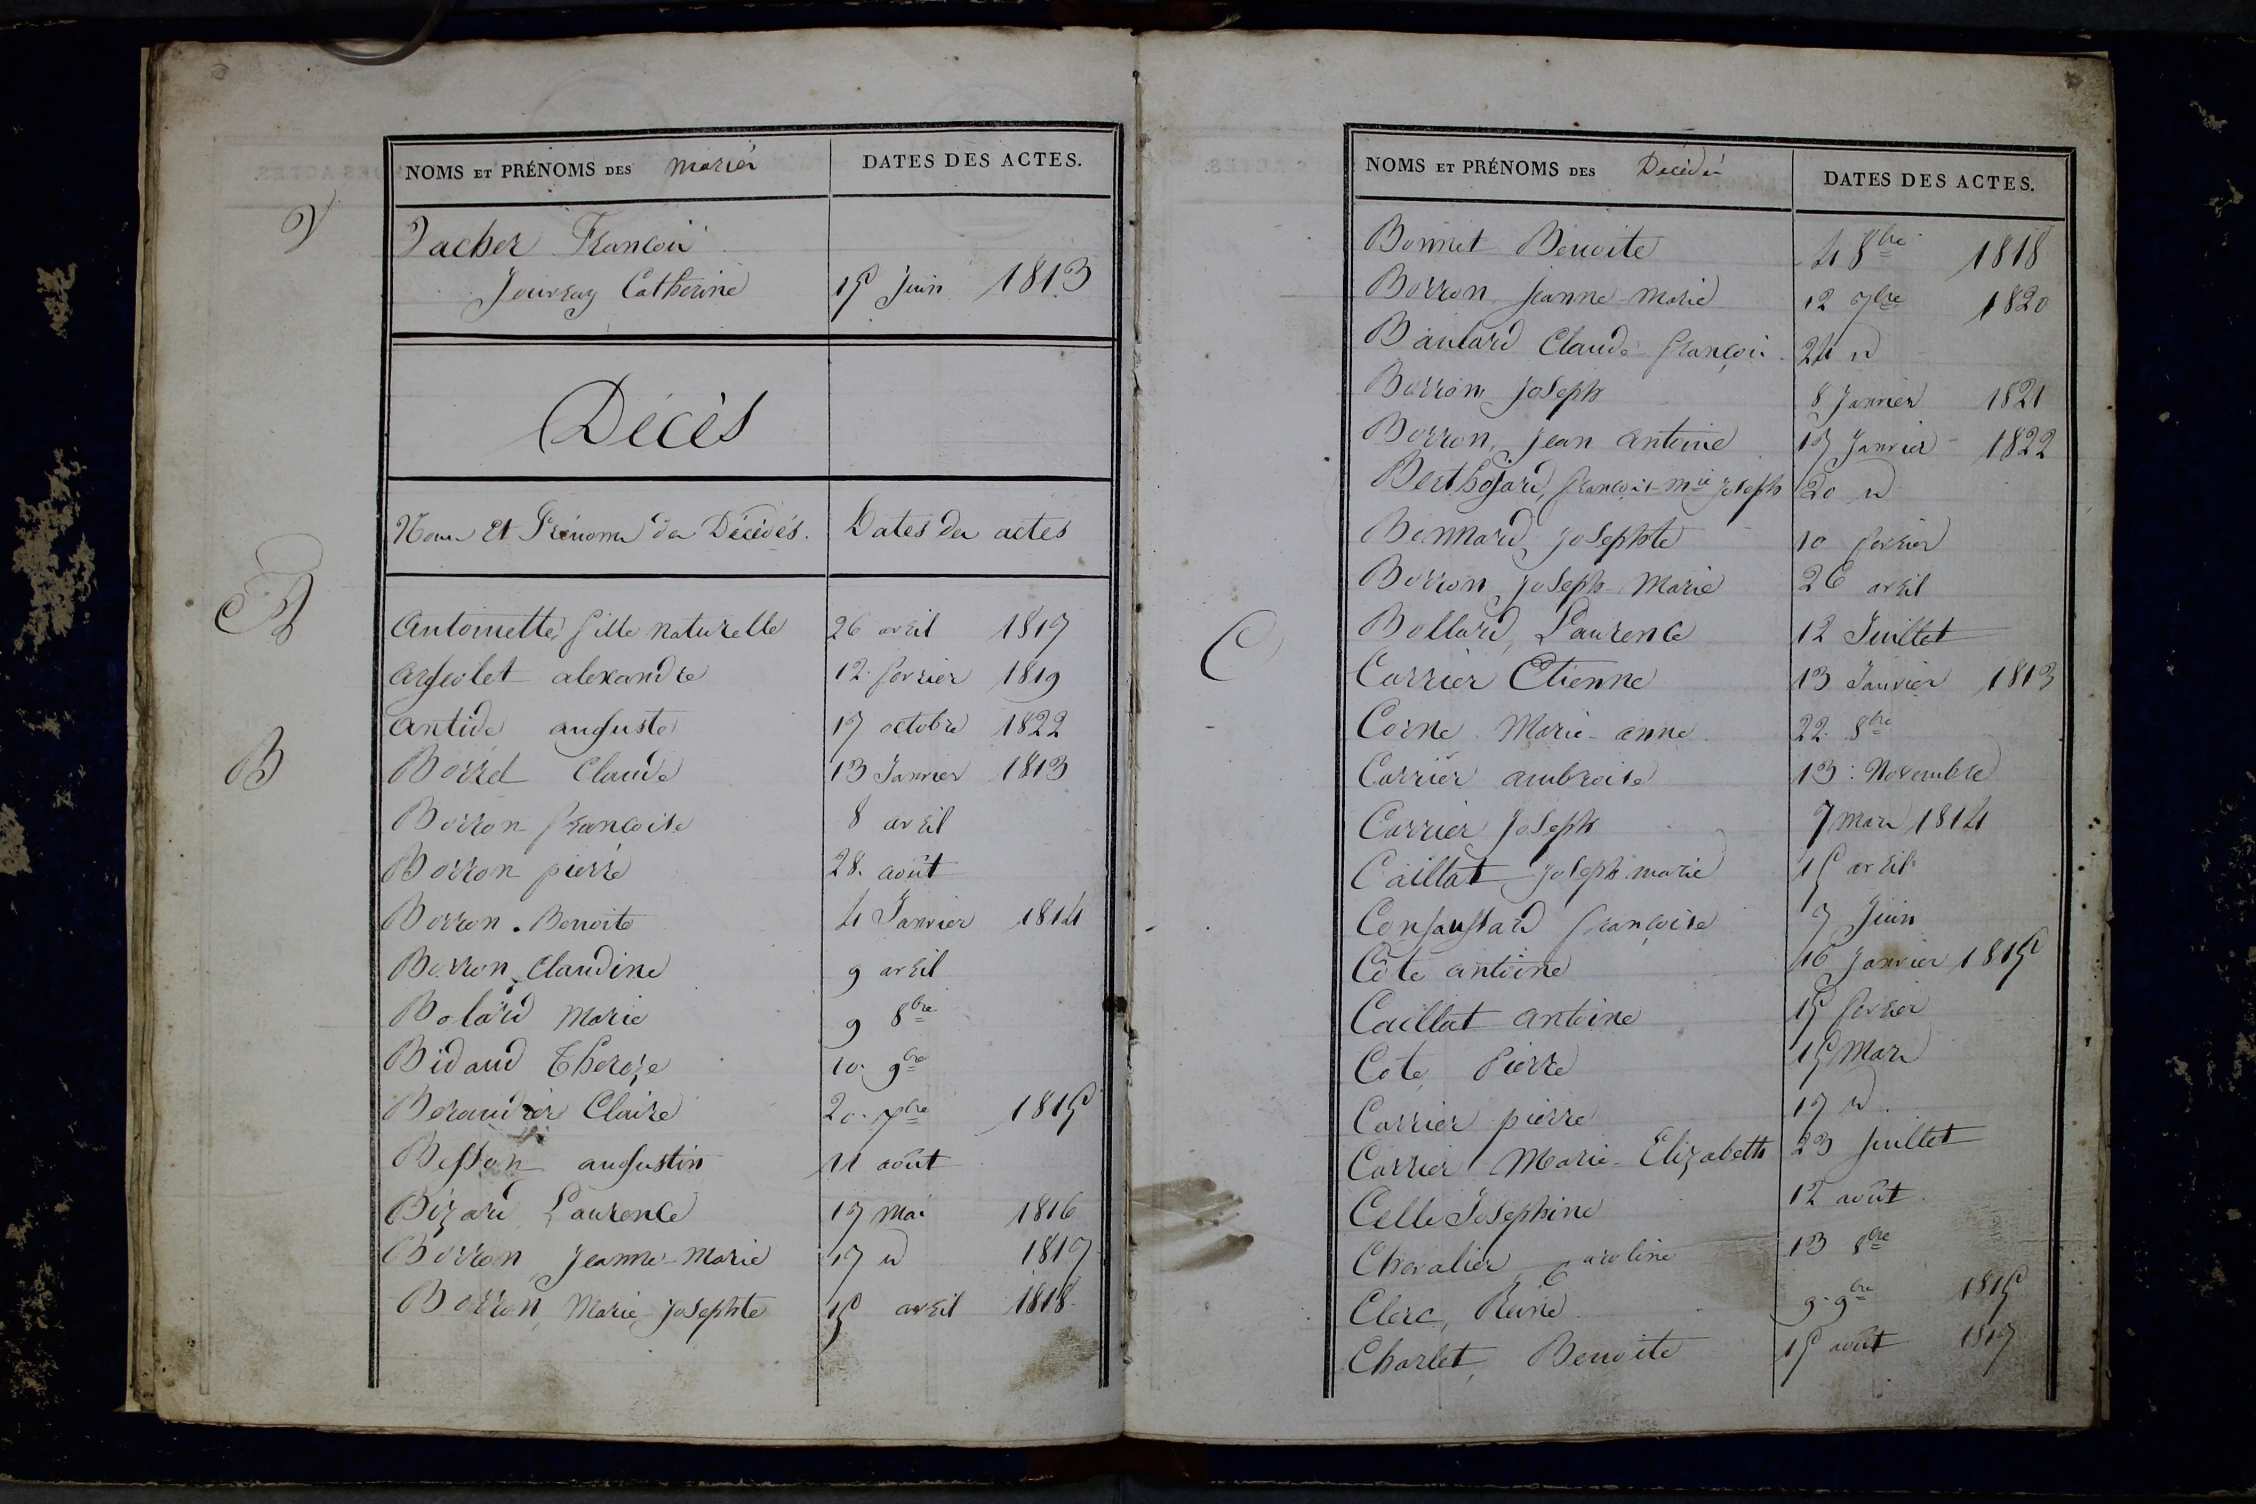 NOMS ET PRÉNOMS DES mariés DATES DES ACTES.
V
Vacher François
Jourray Catherine 15 Juin 1813
Décès
Noms Et Prénoms des Décédés. Dates des actes
A
Antoinette, fille naturelle 26 avril 1817
argeolet alexandre 12. fevrier 1819
antide auguste 17 octobre 1822
B
Borret Claude 13 Janvier 1813
Borron françoise 8 avril
Borron pierre 28. août
Borron. Benoite 4 Janvier 1814
Borron, Claudine 9 avril
Bolard Marie 9 8bre
Bidaud Thereze 10. 9bre
Beraudier Claire 20. 7bre 1815
Besson augustin 11 août
Bizard Laurence 17 mai 1816
Borron Jeanne-Marie 17 d 1817
Borron, Marie Josephte 15 avril 1818.
NOMS ET PRÉNOMS DES Décédés DATES DES ACTES.
Bonnet Benoite 4 8bre 1818
Borron, Jeanne-Marie 12 7bre 1820
Baulard Claude françois 24 d
Borron Joseph 8 Janvier 1821
Borron, Jean antoine 17 Janvier 1822
Berthosard, françois-Mie Joseph 20 d
Bonnard, Josephte 10 fevrier
Borron Joseph-Marie 26 avril
Bollard, Laurence 12 Juillet
C
Carrier Etienne 13 Janvier 1813
Corne Marie-anne 22. 8bre
Carrier ambroise 13. Novembre
Carrier Joseph 7 mars 1814
Caillat Joseph marie 15 avril
françoise 7 Juin
Côte antoine 16 Janvier 1815
Caillat antoine 15 fevrier
Cote Pierre 15 Mars
Carrier pierre 17 d.
Carrier Marie-Elizabeth 23 Juillet
Celle Josephine 12 août
Chevalier Caroline 13 8bre
Clerc, Reine 9. 9bre 1815
Charlet, Benoite 15 août 1817